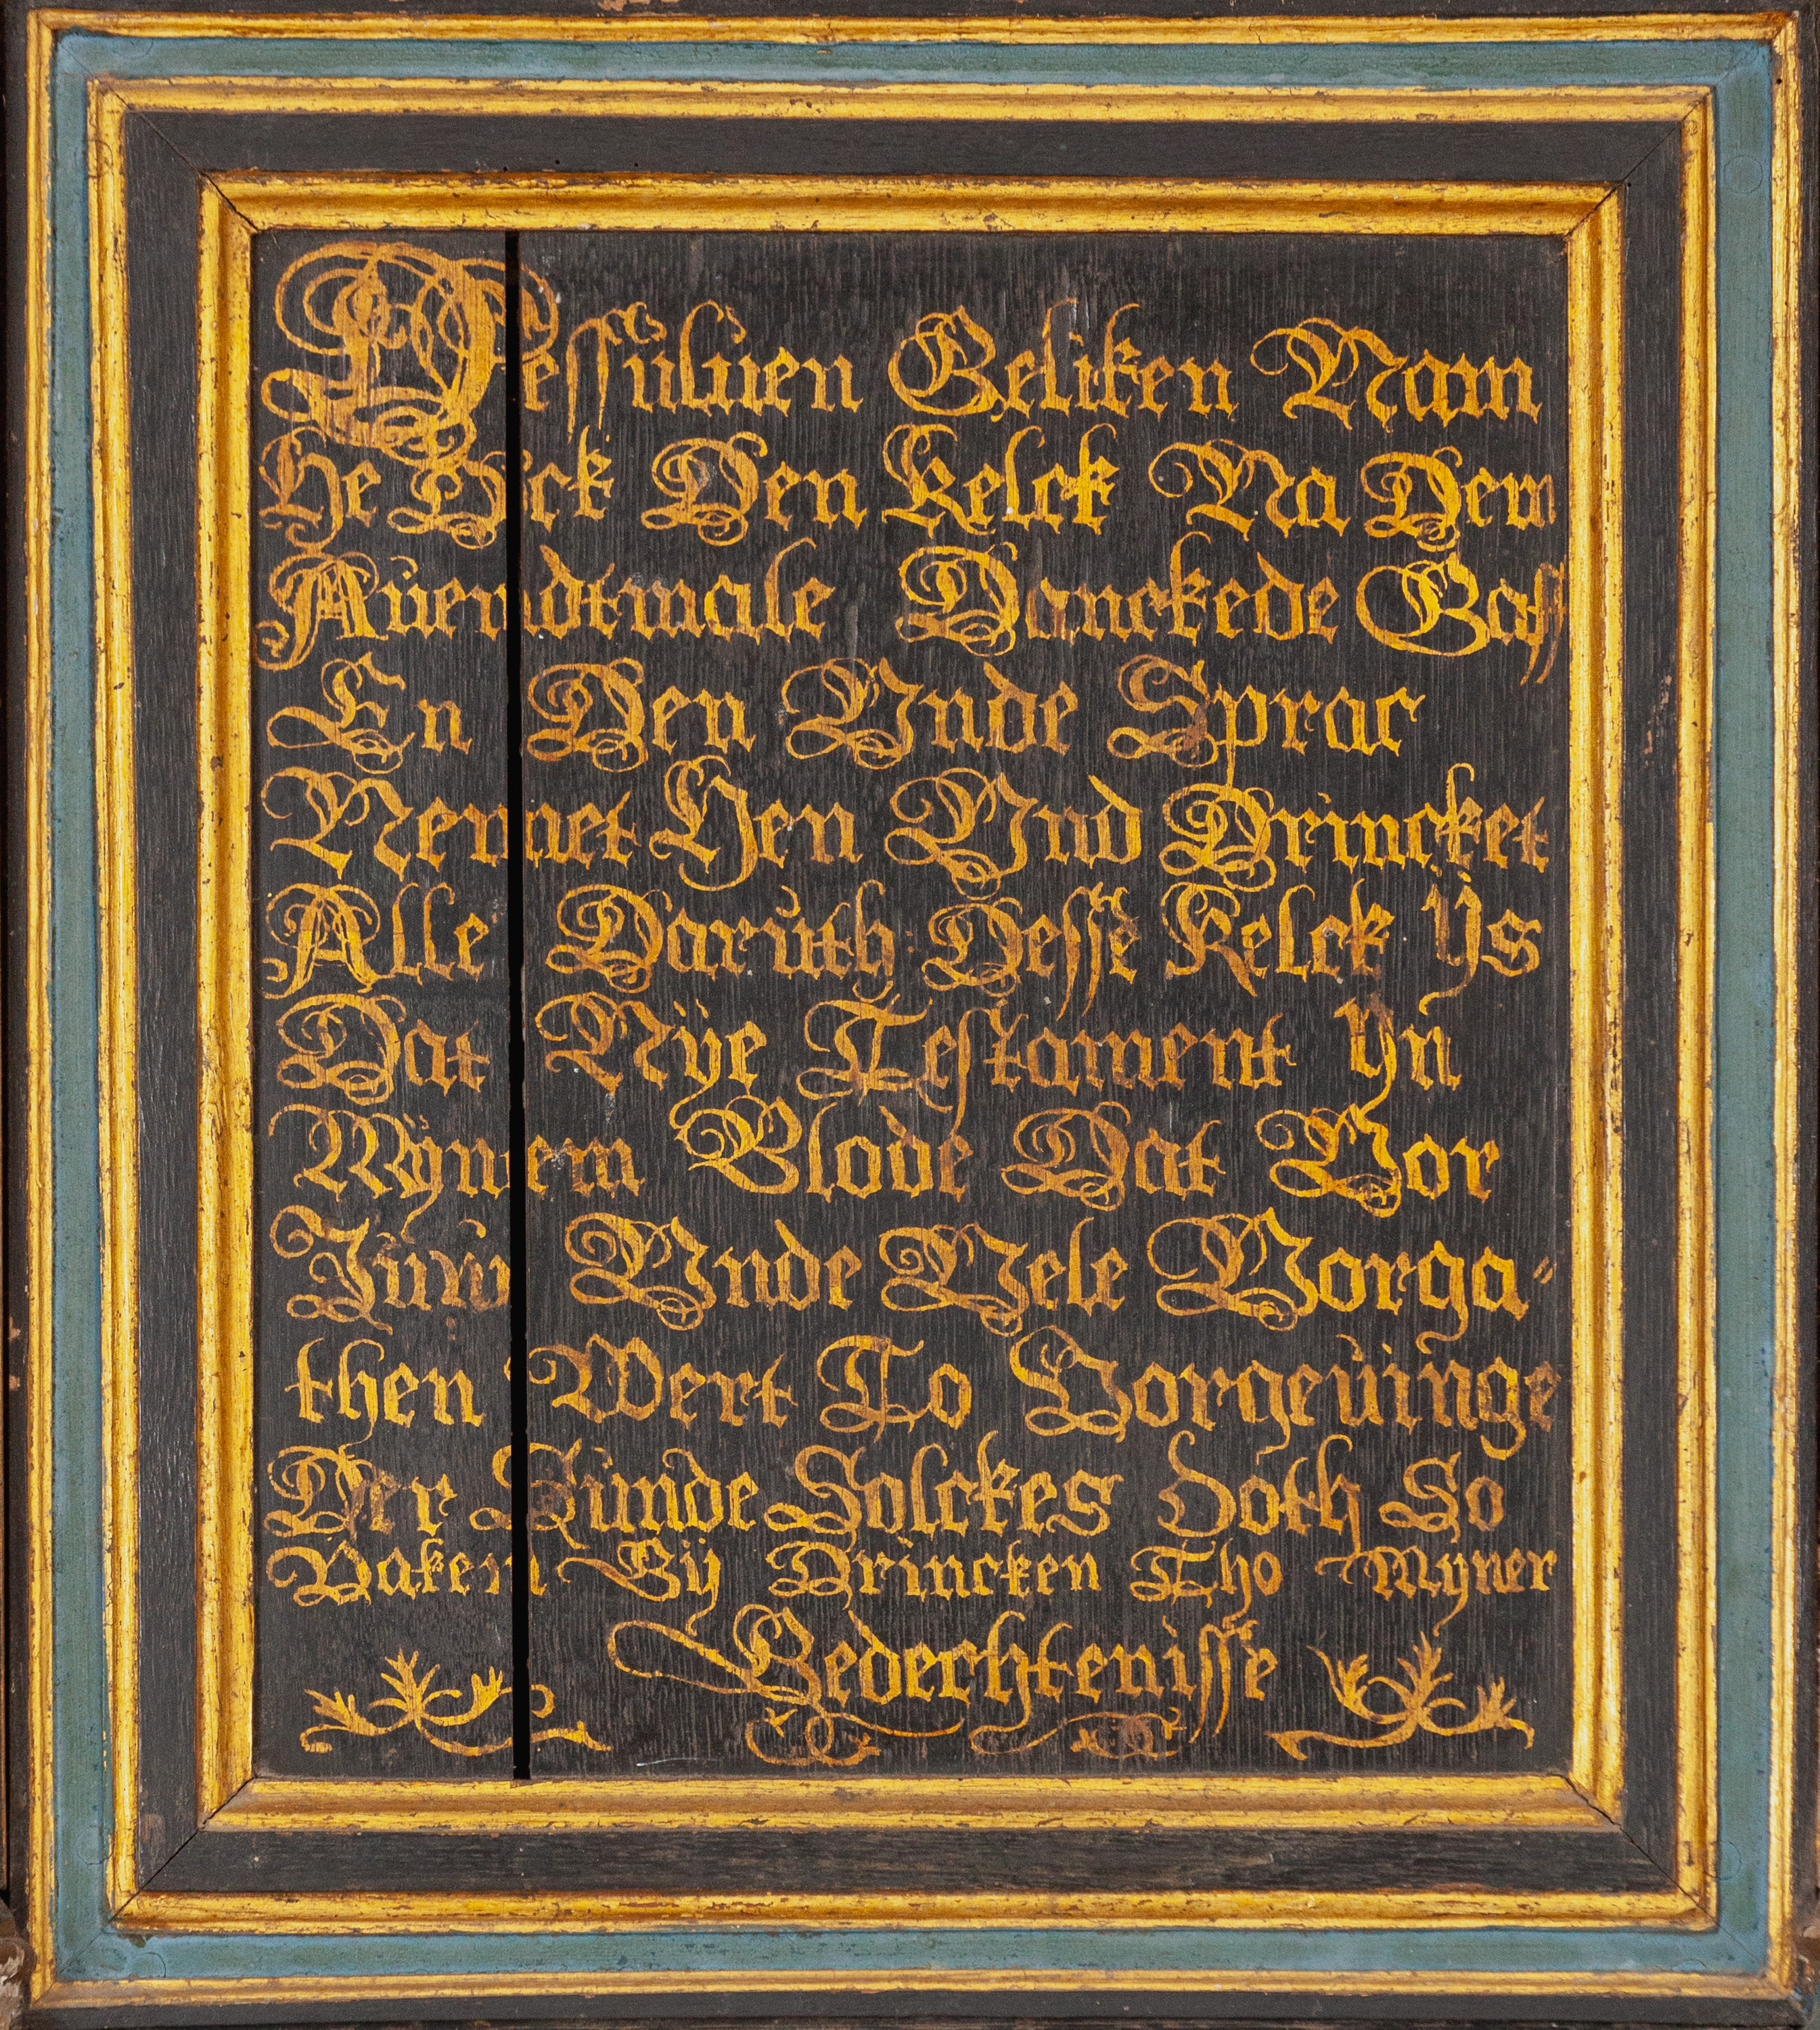 Dessüluen Geliken Nam
He Ock Den Kelck Na Dem
Aůendtmale Danckede Gaff
En Den Vnde Sprac
Nemet Hen Vnd Drincket
Alle Darůth Desse Kelck ÿs
Dat Nÿe Testament yn
Mÿnem Blode Dat Vor
Jůw Vnde Vele Vorga"
then Wert To Vorgeůinge
Der Sünde Solckes doth So
Vakem Gÿ Drincken Tho Mÿner
Gedechtenisse